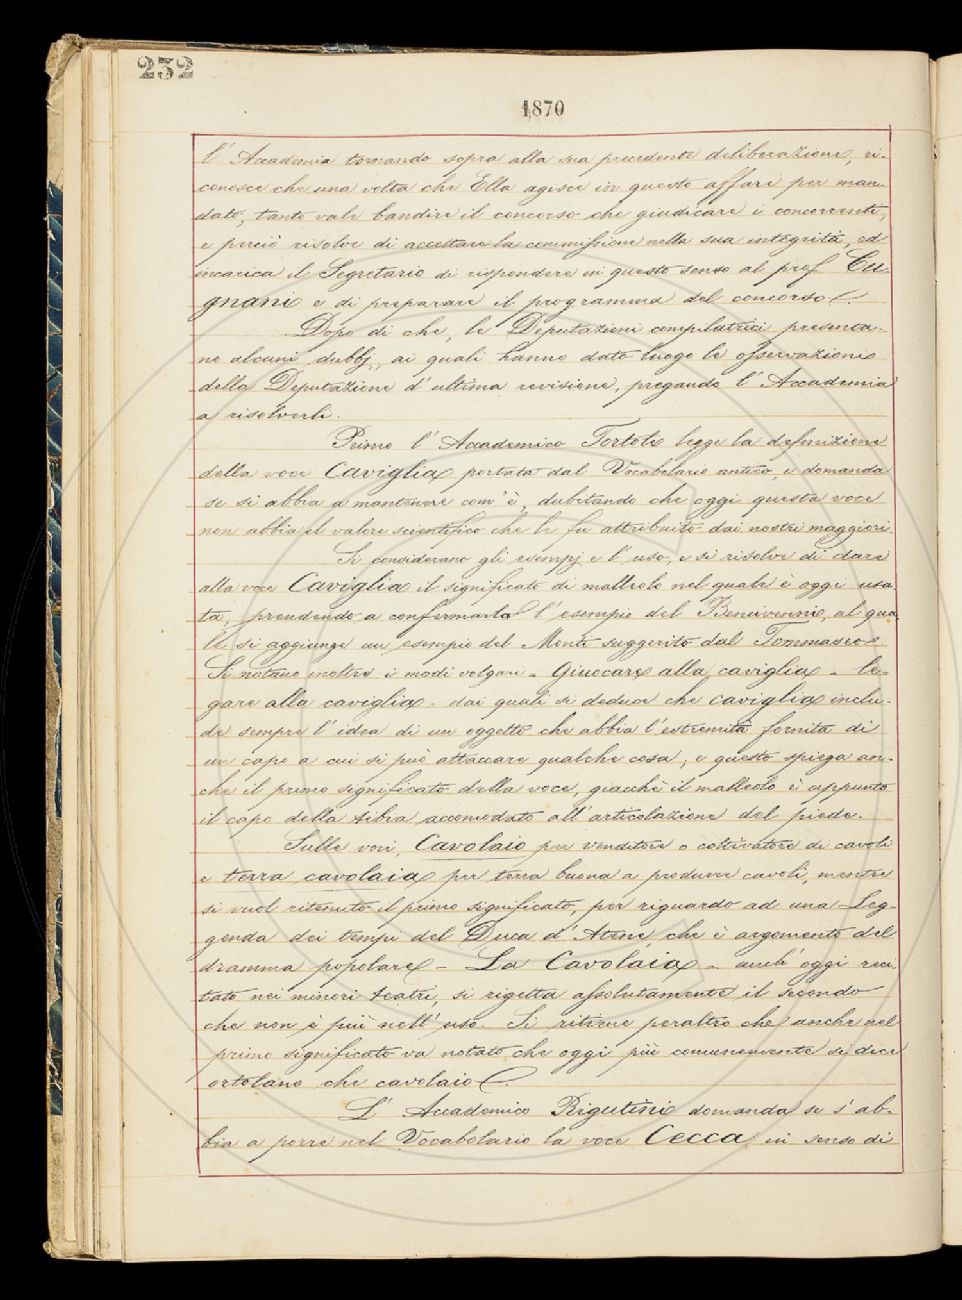 232
1870
l' Accademia tornando sopra alla sua precedente deliberazione, ri-
conosce che una volta che Ella agisce in questo affare per man-
dato, tanto vale bandire il concorso che giudicare i concorrenti,
e perciò risolve di accettare la commissione nella sua integrità, ed
incarica il Segretario di rispondere in questo senso al prof Cu-
gnani e di preparare il programma del concorso.
Dopo di che, le Deputazioni compilatrici presenta-
no alcuni dubbj, ai quali hanno dato luogo le osservazioni
della Deputazione d'ultima revisione, pregando l' Accademia
a risolverli.
Primo l' Accademico Tortoli legge la definizione
della voce Caviglia portata dal Vocabolario antico, e domanda
se si abbia a mantenere com' è, dubitando che oggi questa voce
non abbia il valore scientifico che le fu attribuito dai nostri maggiori.
Si considerano gli esempj e l' uso, e si risolve di dare
alla voce Caviglia il significato di malleolo nel quale è oggi usa
ta, prendendo a confermarlo l' esempio del Benivenni, al qua
le si aggiunge un esempio del Monti suggerito dal Tommaseo.
Si notano inoltre i modi volgari - Giuocare alla caviglia - le-
gare alla caviglia - dai quali si deduce che caviglia inclu-
de sempre l' idea di un oggetto che abbia l'estremità fornita di
un capo a cui si può attaccare qualche cosa, e questo spiega an-
che il primo significato della voce, giacchè il malleolo è appunto
il capo della tibia accomodato all' articolazione del piede.
Sulle voci, Cavolaio per venditore o coltivatore di cavoli
e terra cavolaia per terra buona a produrre cavoli, mentre
si vuol ritenuto il primo significato, per riguardo ad una Leg-
genda dei tempi del Duca d' Atene, che è argomento del
dramma popolare - La Cavolaia - anch' oggi reci
tato nei minori teatri, si rigetta assolutamente il secondo
che non è più nell' uso. Si ritiene peraltro che anche nel
primo significato va notato che oggi più comunemente si dice
ortolano che cavolaio.
L' Accademico Rigutini domanda se s' ab-
bia a porre nel Vocabolario la voce Cecca in senso di